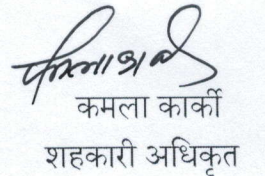 कमला कार्की
शहकारी अधिकृत